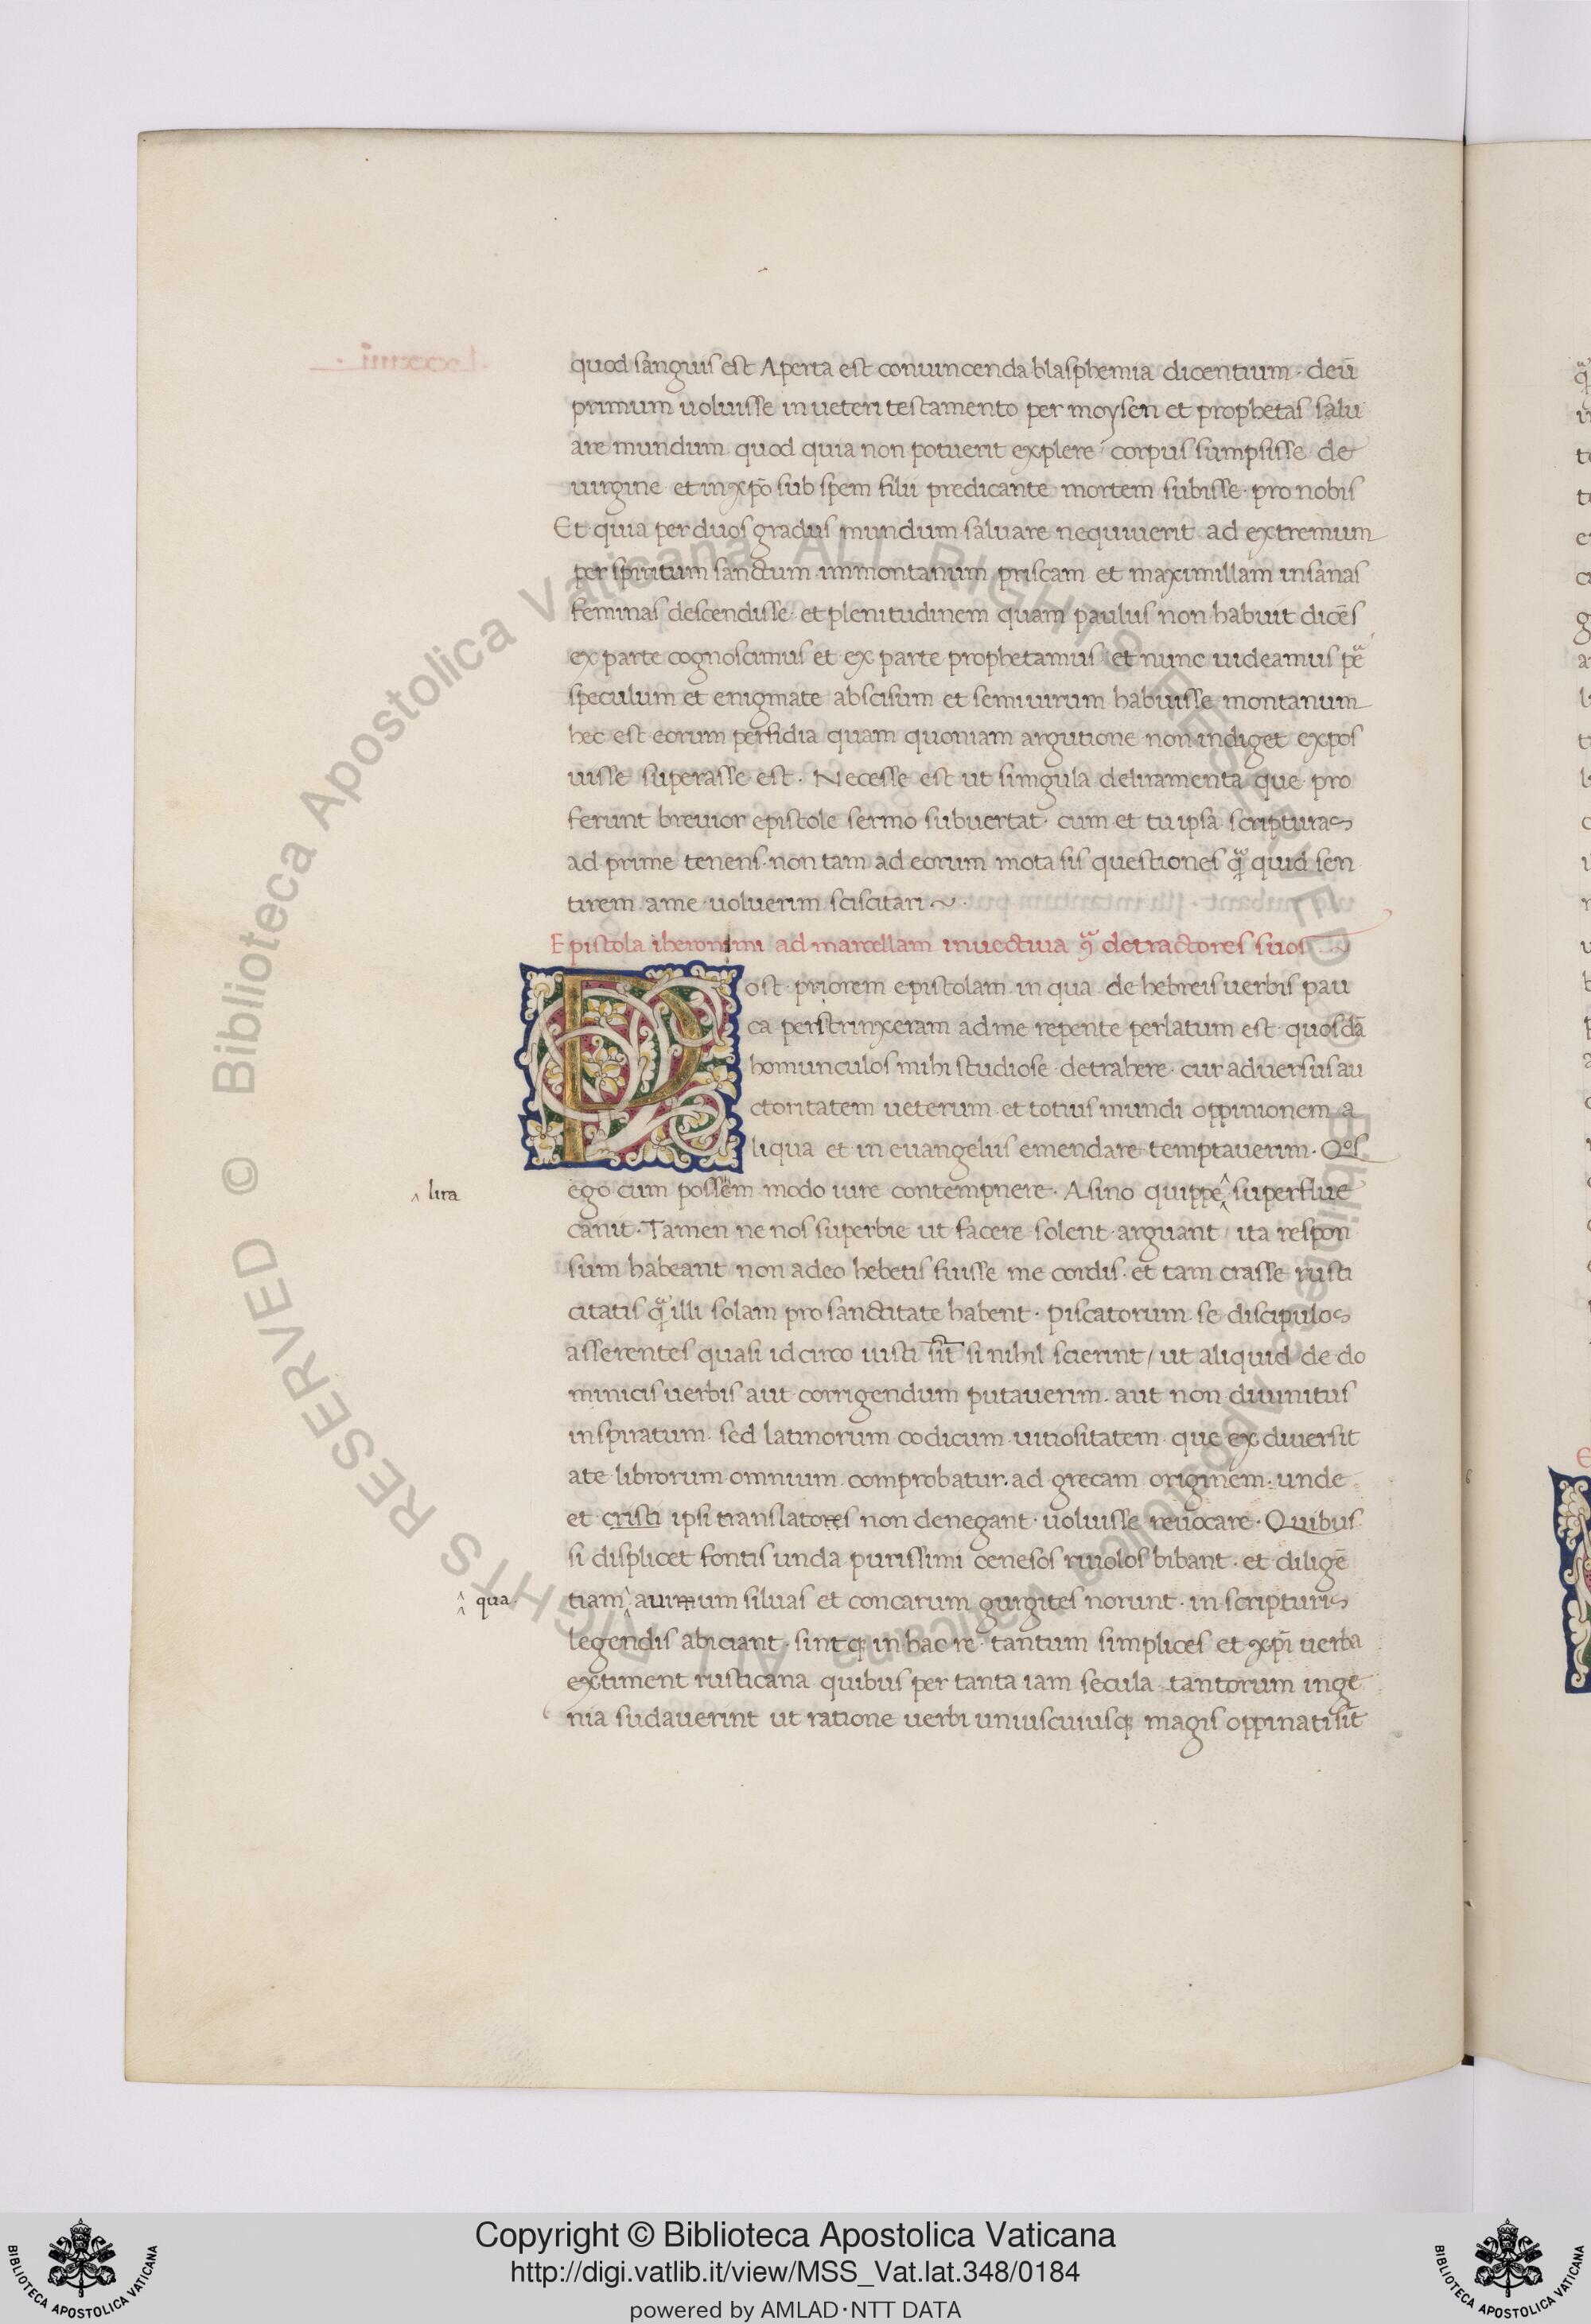 quod sanguis est Aperta est conuincenda blasphemia dicentium · deū
primum uoluisse in ueteri testamento per moysen et prophetas salu
are mundum quod quia non potuerit explere corpus sumpsisse de
uirgine et in xp̄o sub spem filii predicante mortem subisse · pro nobis
Et quia per duos gradus mundum saluare nequiuerit ad extremum
per spiritum sanctum in montanum priscam et maximillam insanas
feminas descendisse · et plenitudinem quam paulus non habuit dicēs
ex parte cognoscimus et ex parte prophetamus et nunc uideamus
speculum et enigmate abscisum et semiuirum habuisse montanum
hec est eorum perfidia quam quoniam argutione non indiget expos
uisse superasse est · Necesse est ut singula deliramenta que pro
ferunt breuior epistole sermo subuertat · cum et tu ipsa scripturas
ad prime tenens · non tam ad eorum mota sis questiones quid sen
tirem a me uoluerim sciscitari ~
Epistola iheronimi ad marcellam inuectiua detractores suos
Post priorem epistolam in qua de hebreis uerbis pau
ca perstrinxeram ad me repente perlatum est quosdā
homunculos mihi studiose detrahere · cur aduersus au
ctoritatem ueterum et totius mundi oppinionem a
liqua et in euangeliis emendare temptauerim · Qos
^ lira
ego cum possem modo iure contempnere · Asino quippe^ superflue
canit · Tamen ne nos superbie ut facere solent · arguant / ita respon
sum habeant non adeo hebetis fuisse me cordis · et tam crasse rusti
citatis illi solam pro sanctitate habent · piscatorum se discipulos
asserentes quasi idcirco iusti sīt si nihil scierint / ut aliquid de do
minicis uerbis aut corrigendum putauerim · aut non diuinitus
inspiratum · sed latinorum codicum uitiositatem que ex diuersit
ate librorum omnium comprobatur · ad grecam originem · unde
et cristi ipsi translatores non denegant · uoluisse reuocare · Quibus
si displicet fontis unda purissimi cenesos riuolos bibant · et diligē
^ qua ·
tiam^ siluas et concarum gurgites norunt · in scripturis
legendis abiciant · sintq; in hac re tantum simplices et xp̄i uerba
extiment rusticana quibus per tanta iam secula tantorum inge
nia sudauerint ut ratione uerbi uniuscuiusq; magis oppinati sīt
Copyright © Biblioteca Apostolica Vaticana
http://digi.vatlib.it/view/MSS_Vat.lat.348/0184
powered by AMLAD·NTT DATA
BIBLIOTECA APOSTOLICA VATICANA
BIBLIOTECA APOSTOLICA VATICANA
Biblioteca Apostolica Vaticana ALL RIGHTS RESERVED
© Biblioteca Apostolica Vaticana ALL RIGHTS RESERVED